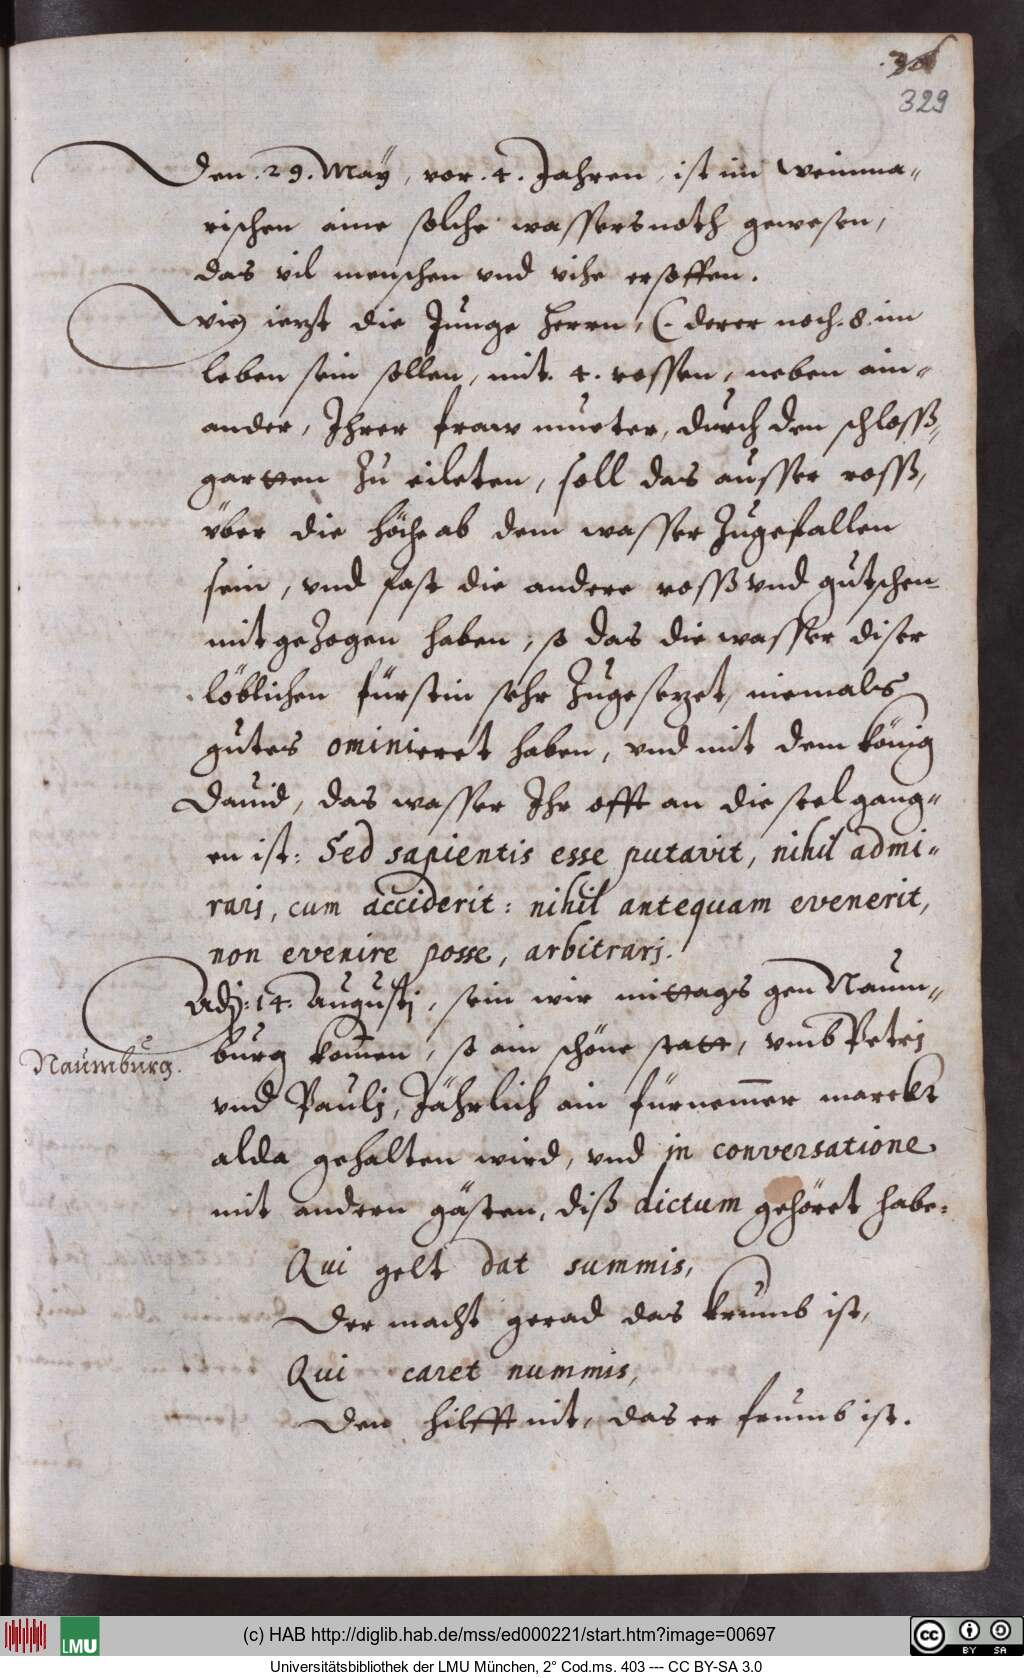 329
Den .29. May, vor .4. Jahren, ist im Weinma-
rischen aine solche wassersnoth gewesen,
das vil menschen vnd vihe ersoffen.
Wie ietzt die Junge Herrn, (: derer noch .8. im
leben sein sollen, mit .4. rossen, neben ain-
ander, Ihrer fraw mueter, durch den schloss-
gartten zu eileten, soll das ausser ross,
über die höche ab dem wasser zugefallen
sein, vnd fast die andere ross vnd gutschen
mitgezogen haben, so das die wasser diser
löblichen fürstin sehr zugesetzet, niemals
gutes ominieret haben, vnd mit dem König
Dauid, das wasser Ihr offt an die seel gang-
en ist: Sed sapientis esse putavit, nihil admi-
rarj, cum acciderit: nihil antequam evenerit,
non evenire posse, arbitrarj.
Adj: 14: Augustj, sein wir mittags gen Naum-
burg komen, so ain schöne statt, vmb Petrj
Naumburg.
vnd Paulj, Jährlich ain fürnemer marckt
alda gehalten wird, vnd in conversatione
mit andern gästen, diß dictum gehöret habe:
Qui gelt dat summis,
Der macht gerad das krumb ist,
Qui caret nummis,
Den hilfft nit, das er frumb ist.
(c) HAB http://diglib.hab.de/mss/ed000221/start.htm?image=00697
Universitätsbibliothek der LMU München, 2° Cod.ms. 403 --- CC BY-SA 3.0
LMU
cc BY SA